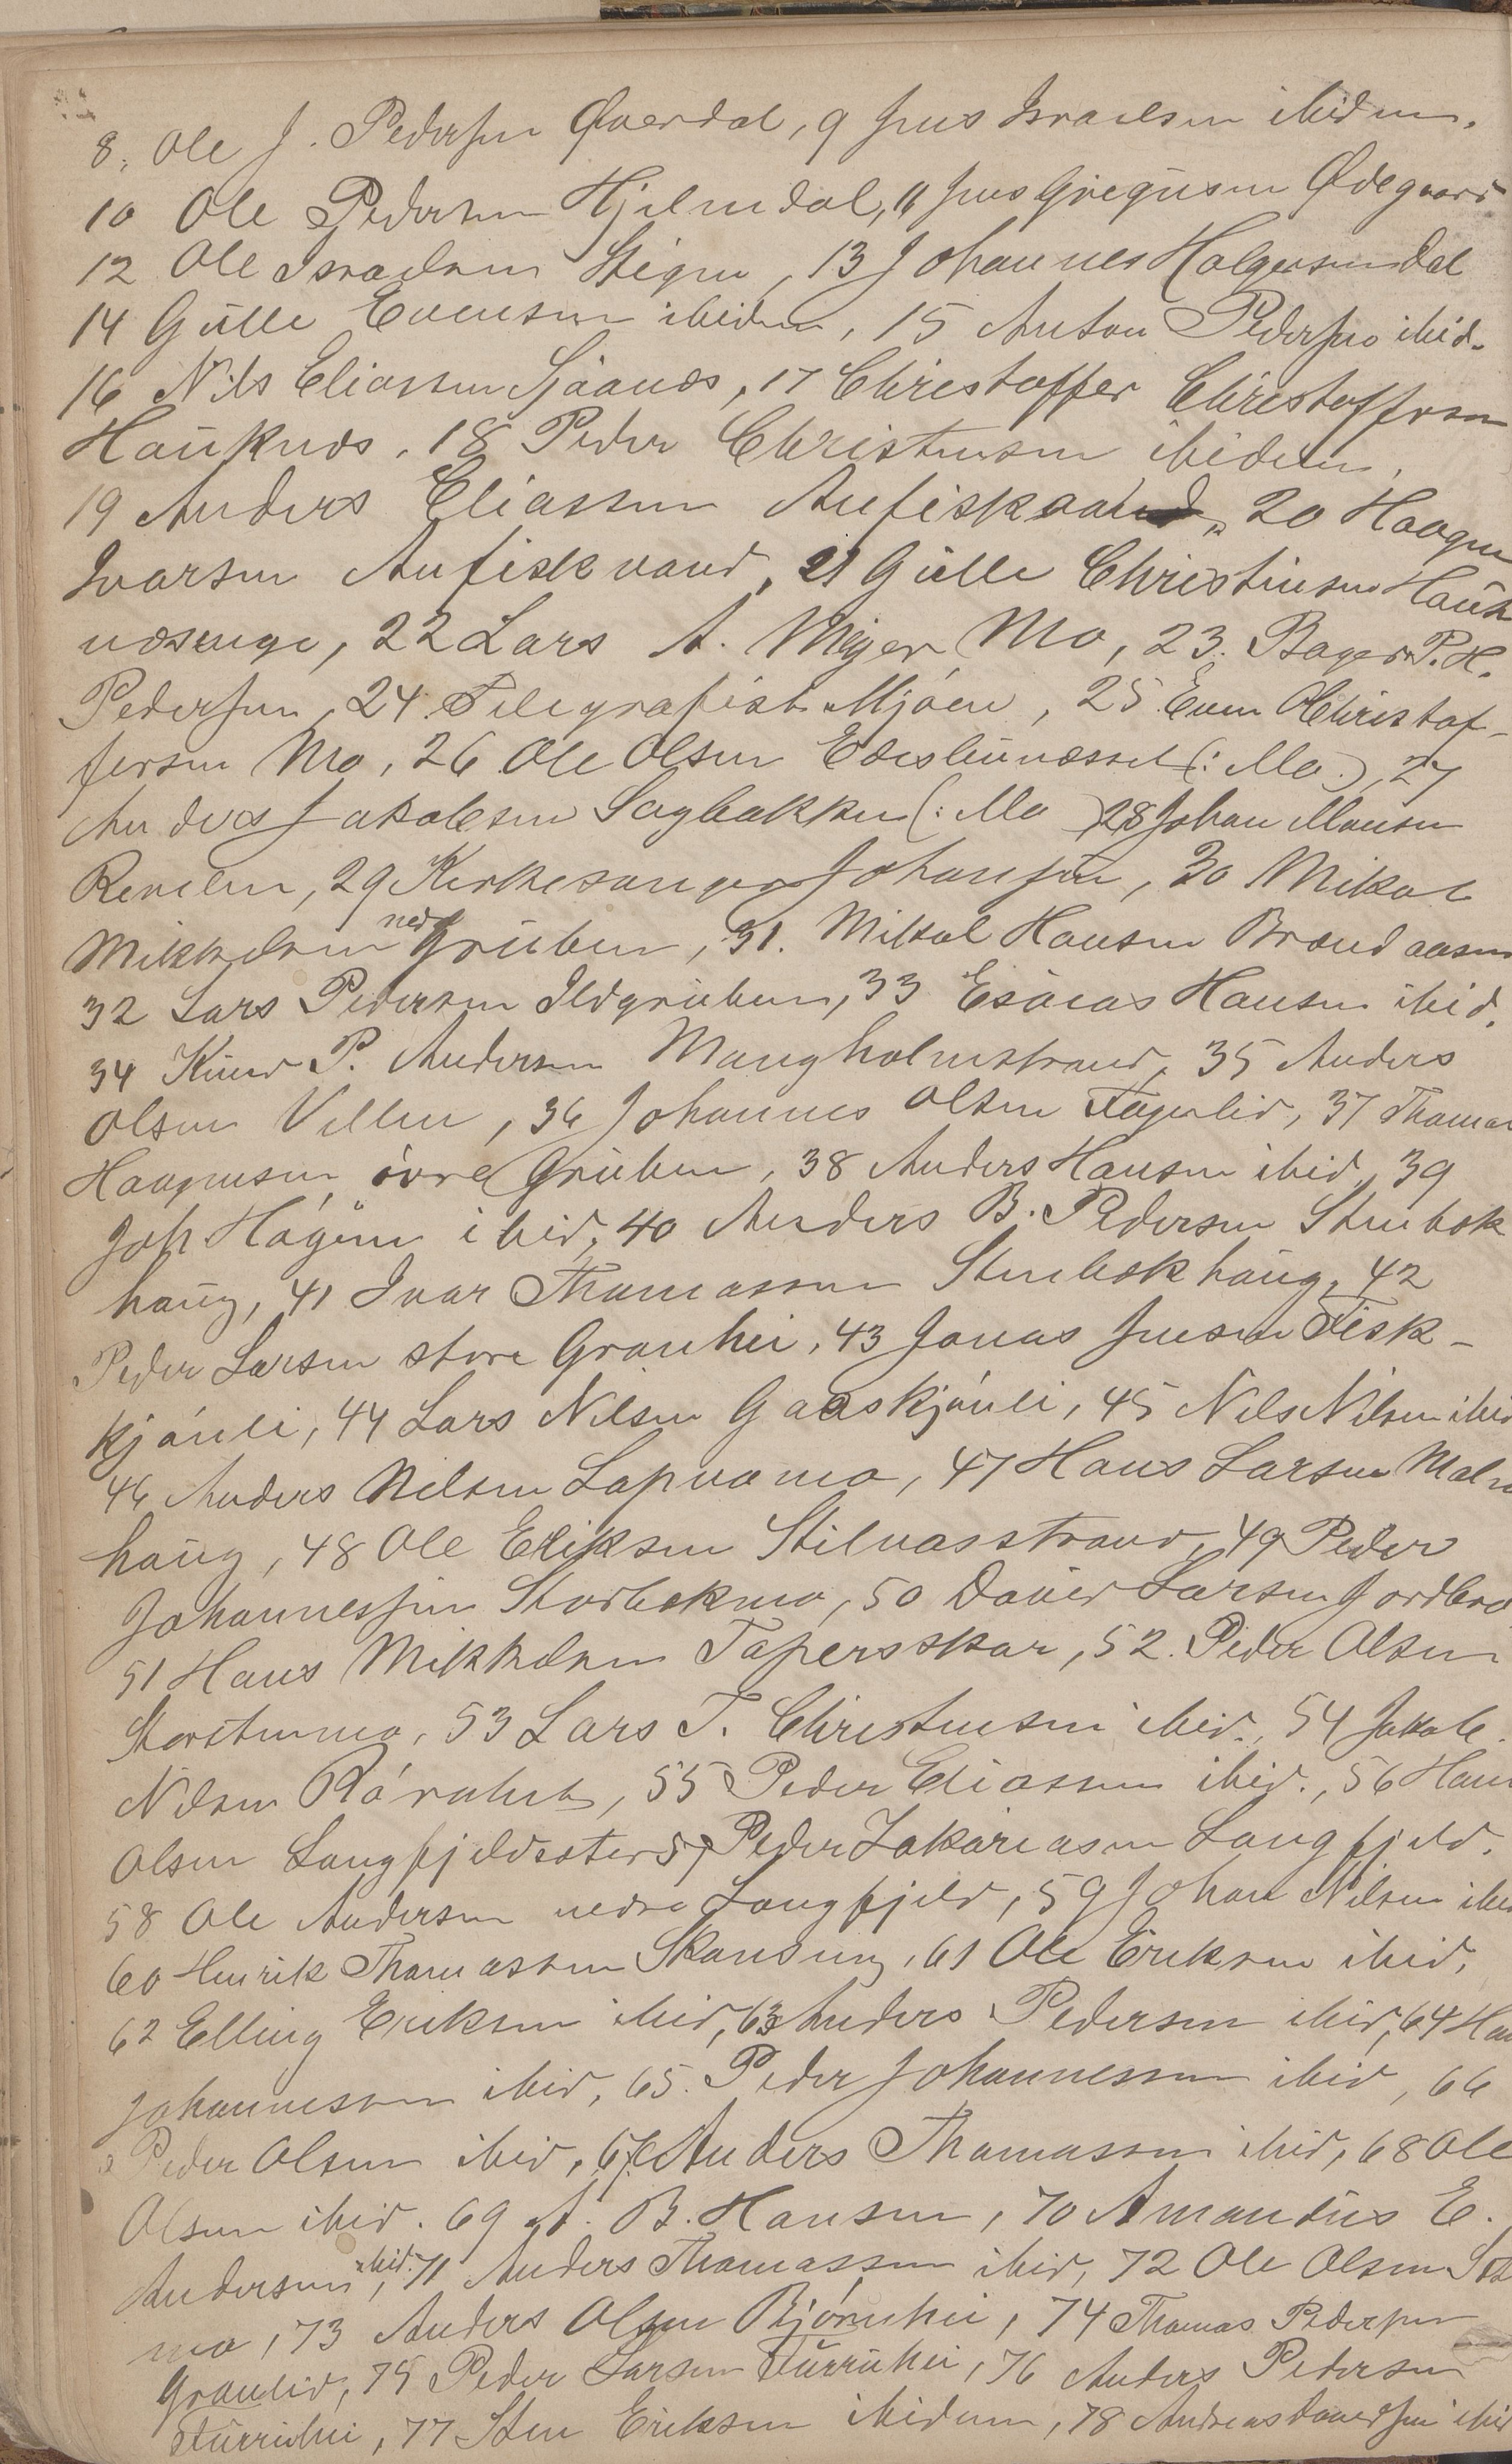 8, Ole J. Pedersen Øverdal, 9 Jens Israelsen ibidem.
10 Ole Pedersen Hjelmdal, 11 Jens Gregusen Ødegaard
12 Ole Israelsen Stigen, 13 Johannes Holgersen Dal
14 Gulle Evensen ibidem, 15 Anton Pedersen ibid.
16 Nils Eliassen Sjåenes, 17 Christoffer Christoffersen
Hauknes, 18 Peder Christensen ibidem,
19 Anders Eliassen Aufiskvand, 20 Haagen
Ivarsen Aufiskvand, 21 Gulle Christensen Hauk
nesenge, 22 Lars A. Meyer Mo, 23. Bager P. H.
Pedersen, 24. Telegrafist Mjóen, 25 Even Christof-
fersen Mo, 26 Ole Olsen (: Mo.), 27
Anders Jakobsen Sagbakken (: Mo ) 28 Johan Monsen
Revelen, 29 Kirkesanger Johansen, 30 Mikal
Mikkelsen nedr Gruben, 31. Mikal Hansen Brændaasen
32 Lars Pedersen Ildgruben, 33 Esaias Hansen ibid.
34 Knud P. Andersen Mangholmstrand, 35 Anders
Olsen Villen, 36 Johannes Olsen Fagerlid, 37 Thomas
Haagensen óvre Gruben, 38 Anders Hansen ibid, 39
Joh Hågen ibid, 40 Anders B. Pedersen Stenbæk
haug, 41 Ivar Thomassen Stenbækhaug, 42
Peder Larsen store Granhei, 43 Jonas Jensen Fisk-
kjónli, 44 Lars Nilsen Gaaskjónli, 45 Nils Nilsen ibid
46 Anders Nilsen Lapmo, 47 Hans Larsen Malm
haug, 48 Ole Eriksen Stilvasstrand, 49 Peder
Johannessen Storbækmo, 50 Daniel Larsen Jordbro
51 Hans Mikkelsen Tapersskar, 52. Peder Olsen
Storstenmo, 53 Lars T. Christensen ibid., 54 Jakob
Nilsen Róvatnet, 55 Peder Eliassen ibid., 56 Hans
Olsen Langfjeldsæter, 57 Peder Zakariasen Langfjeld.
58 Ole Andersen nedre Langfjeld, 59 Johan Nilsen ibid
60 Henrik Thomassen Skanseng, 61 Ole Eriksen ibid,
62 Elling Eriksen ibid, 63 Anders Pedersen ibid, 64 Hans
Johannesen ibid, 65. Peder Johannessen ibid, 66
Peder Olsen ibid, 67 Anders Thomassen ibid, 68 Ole
Olsen ibid. 69 A. B. Hansen, 70 Amandus E.
Andersen ibid, 71 Anders Thomassen ibid, 72 Ole Olsen
mo, 73 Anders Olsen Bjórnhei, 74 Thomas Pedersen
Granlid, 75 Peder Larsen Furruhei, 76 Anders Pedersen
Furruhei, 77 Sten Eriksen ibidem, 78 Andreas Danielsen ibid